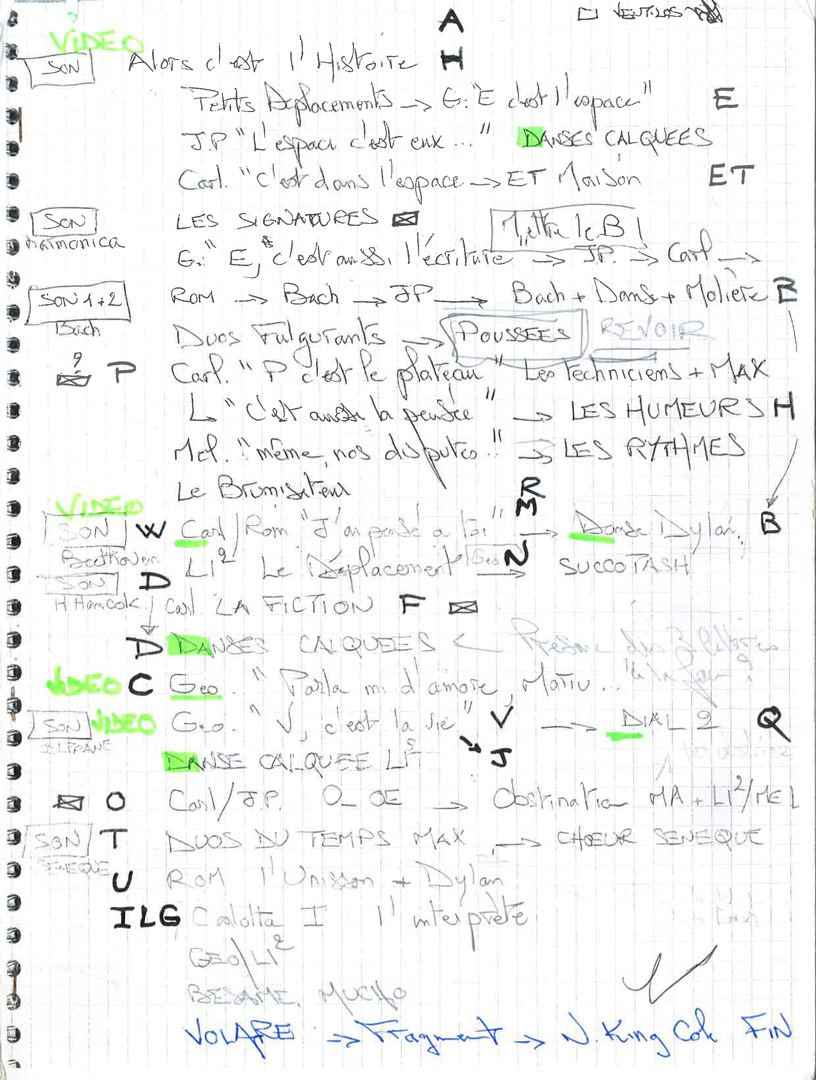 A
□ VENTILOS
VIDEO
SON Alors c'est l'Histoire H
Petits Déplacements → G: "E c'est l'espace" E
J.P "L'espace c'est eux ..." DANSES CALQUEES
Carl. "C'est dans l'espace → ET Maison ET
SON LES SIGNATURES
harmonica
Mettre le B !
G: "E, c'est aussi l'écriture → JP. → Carl →
SON 1+2 ROM → Bach → JP → Bach + Danse + Molière E
Bach
Duos Fulgurants → POUSSEES REVOIR
? P Carl. "P c'est le plateau" Les Techniciens + MAX
↳ "c'est aussi la pensée" → LES HUMEURS H
Mel. "même, nos disputes" → LES RYTHMES
Le Brumisateur R
VIDEO M
SON W Carl/Rom "J'ai pensé à toi" → Danse Dylan B
Beethoven
SON D LI² Le Déplacement Geo N → SUCCOTASH
H Hamcok Carl LA FICTION F
D DANSES CALQUEES ←
VIDEO C Geo. "Parla mi d'amore, Mariu...
SON VIDEO Geo. "V, c'est la vie" V → DIAL 2 Q
DANSE CALQUEE LI⁵ J
O Carl/J.P. O_OE → Obstination MA + LI²/MEL
SON T DUOS DU TEMPS MAX → CHŒUR SENEQUE
SENEQUE
U ROM l'Unisson + Dylan
ILG Carlotta I l'interprète
GEO/LI²
BESAME MUCHO
VOLARE → Fragment → N. King Cole FIN